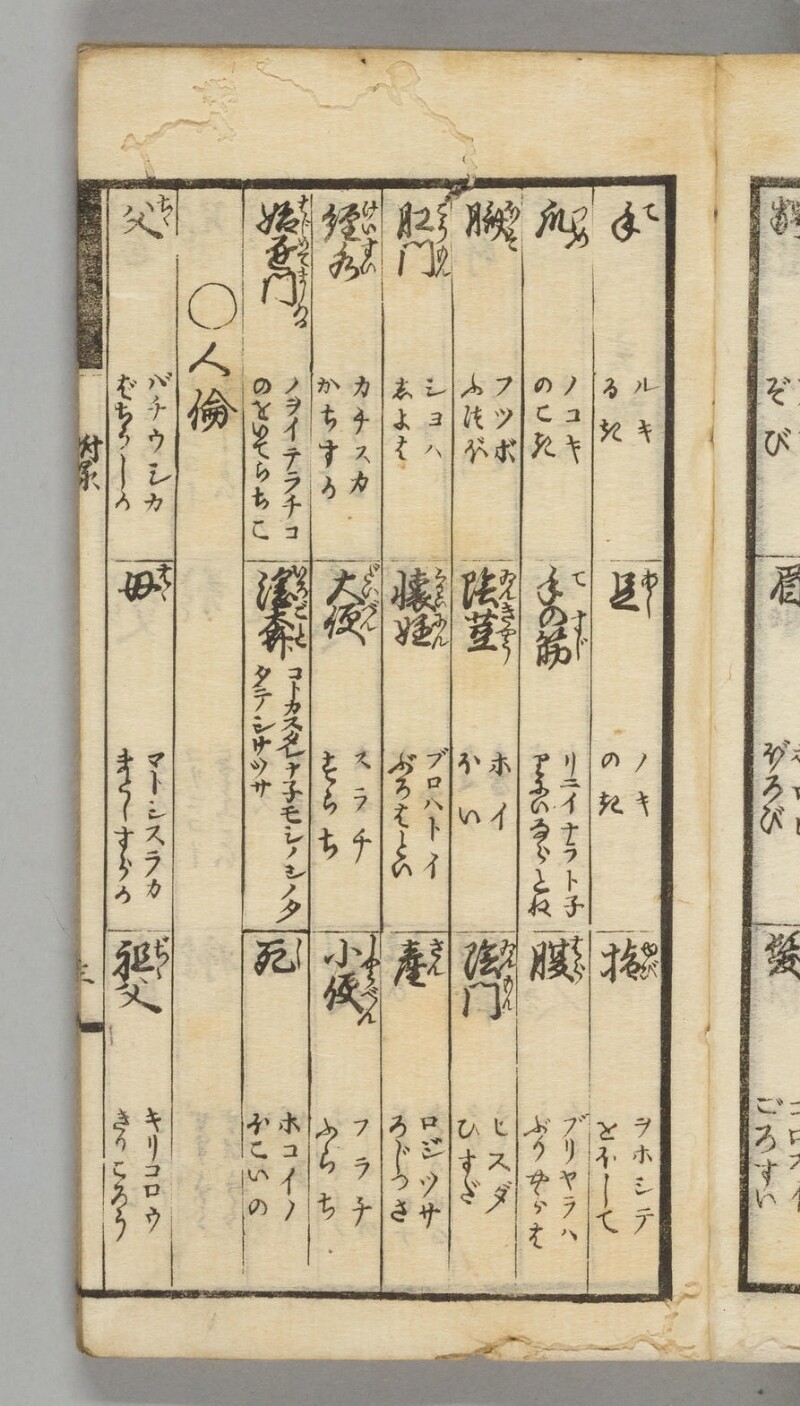 手 て
ルキ
るき
足 あし
ノキ
のき
指 ゆび
ヲホシテ
をほして
爪 つめ
ノコキ
のこき
手の筋 て すじ
リニイナラト子
腹 はら
ブリヤラハ
ぶりやらは
臍 へそ
フツボ
ふつぼ
陰茎
ホイ
ほい
陰門 いんもん
ヒスダ
ひすだ
肛門 こうもん
シヨハ
しよは
懐妊 くわいにん
ブロハトイ
ぶろはとい
産 さん
ロジツサ
ろじつさ
経水 けいすい
カチスカ
かちする
大便 だいべん
スラチ
すらち
小便 しやうべん
フラチ
ふらち
ノヲイテラチコ
のをいてらちこ
コトカスタレナ子モシノシノタ
タテシサツサ
死 し
ホコイノ
ほこいの
〇人倫
父 ちゝ
バチウシカ
ばちうしか
母 はゝ
マトシスラカ
祖父 ぢゝ
キリコロウ
きりころう
附录
三
ぞび
眉
ごろすい
髪